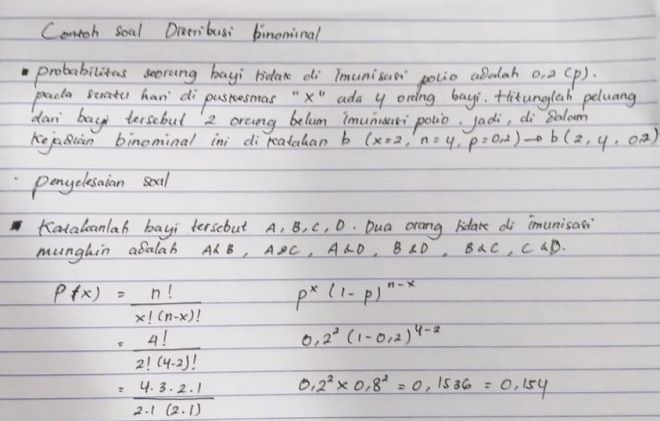 Contoh soal Distribusi binominal
▪ probabilitas seorang bayi tidak di imunisasi polio adalah 0,2 (p).
pada suatu hari di puskesmas "x" ada 4 orang bayi. Hitunglah peluang
dari bayi tersebut 2 orang belum imunisasi polio. jadi, di dalam
kejadian binominal ini di katakan b (x=2, n=4, p=0,2) → b (2, 4, 0,2)
· penyelesaian soal
▪ Katakanlah bayi tersebut A, B, C, D. Dua orang tidak di imunisasi
mungkin adalah A&B, A&C, A&D, B&D, B&C, C&D.
P(x) = n! / x! (n-x)! pˣ (1-p)ⁿ⁻ˣ
= 4! / 2! (4-2)! 0,2² (1-0,2)⁴⁻²
= 4.3.2.1 / 2.1 (2.1) 0,2² x 0,8² = 0,1536 = 0,154